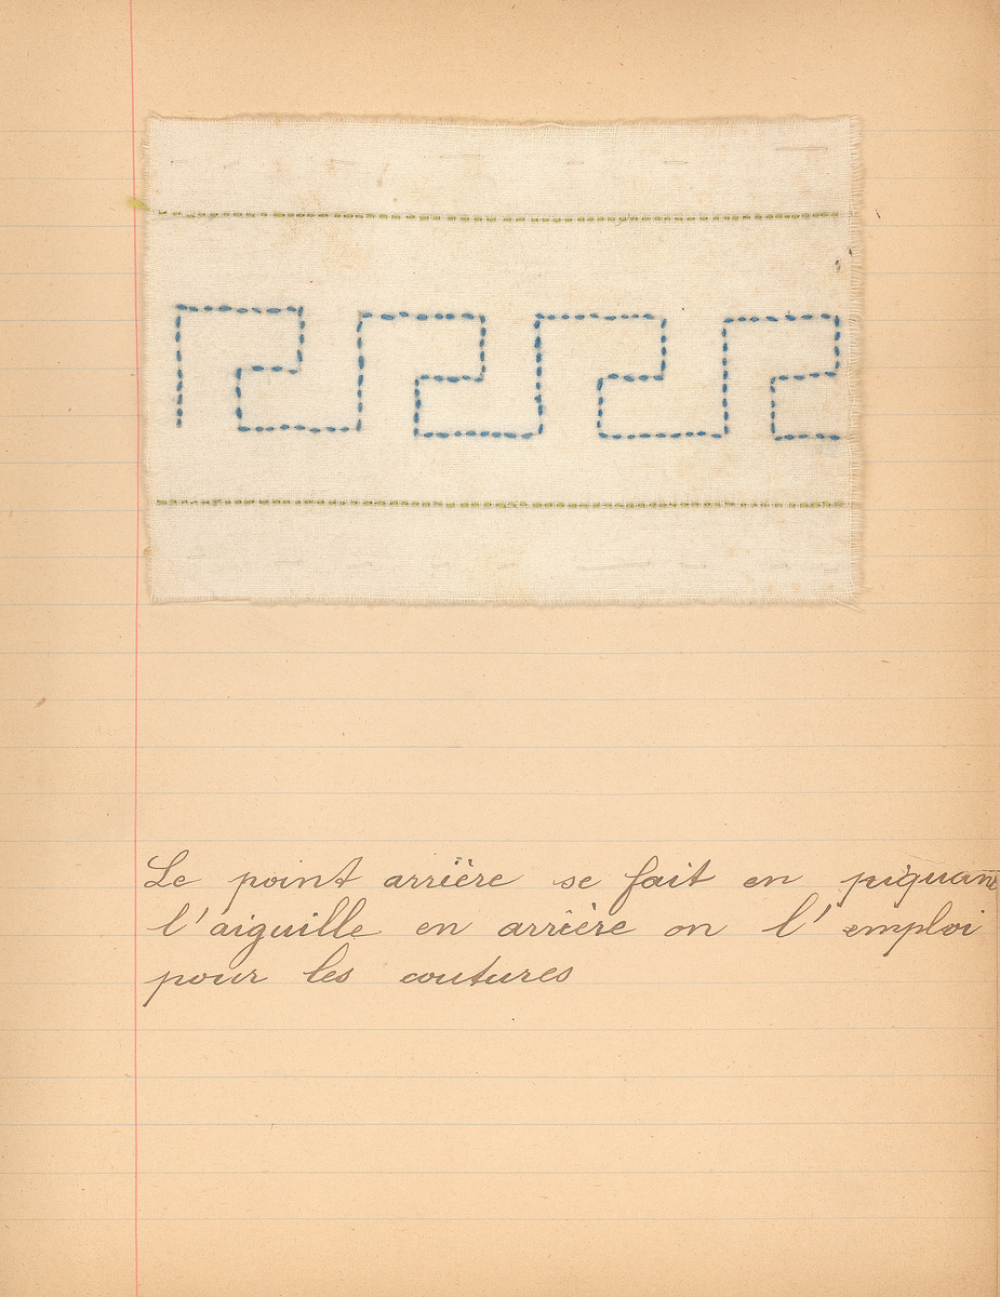 Le point arrière se fait en piquant
l'aiguille en arrière on l'emploi
pour les coutures